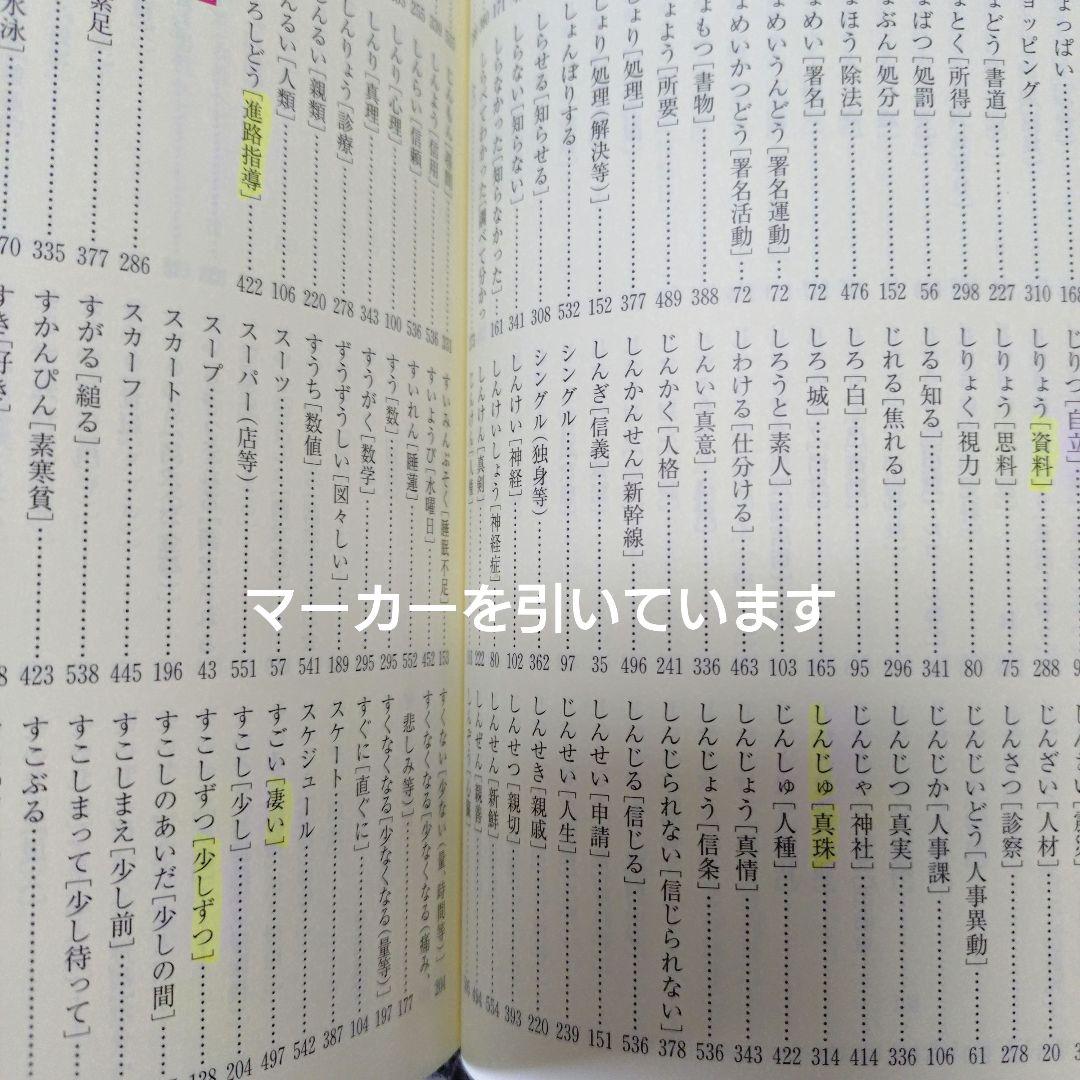 ょっぱい……168
ョッピング……310
ょどう[書道]……227
ょとく[所得]……298
ょばつ[処罰]……56
ょぶん[処分]……152
ょほう[除法]……476
ょめい[署名]……72
ょめいうんどう[署名運動]……72
ょめいかつどう[署名活動]……72
ょもつ[書物]……388
ょよう[所要]……489
ょり[処理]……377
しょり[処理(解決等)]……152
しょんぼりする……532
しらせる[知らせる]……308
しらない[知らない]……341
しらなかった[知らなかった]……161
しらべてわかった[調べて分かっ
じりつ[自立]……
しりょう[資料]……288
しりょう[思料]……75
しりょく[視力]……80
しる[知る]……341
じれる[焦れる]……296
しろ[白]……95
しろ[城]……165
しろうと[素人]……103
しわける[仕分ける]……463
しんい[真意]……336
じんかく[人格]……241
しんかんせん[新幹線]……496
しんぎ[信義]……35
シングル……97
シングル(独身等)……362
しんけい[神経]……102
しんけいしょう[神経症]……80
しんけん[真剣]……222
じんざい[人材]……20
しんさつ[診察]……278
じんじいどう[人事異動]……61
じんじか[人事課]……106
しんじつ[真実]……336
じんじゃ[神社]……414
しんじゅ[真珠]……314
じんしゅ[人種]……422
しんじょう[真情]……343
しんじょう[信条]……536
しんじられない[信じられない]……378
しんじる[信じる]……536
しんせい[申請]……151
じんせい[人生]……239
しんせき[親戚]……220
しんせつ[親切]……393
しんせん[新鮮]……554
しんぜん[親善]……494
しんよう[信用]……536
しんらい[信頼]……536
しんり[心理]……100
しんり[真理]……343
しんりょう[診療]……278
しんるい[親類]……220
んるい[人類]……106
ろしどう[進路指導]……422
286
素足]……377
335
水泳]……70
すいみんぶそく[睡眠不足]……153
すいようび[水曜日]……452
すいれん[睡蓮]……552
すう[数]……295
すうがく[数学]……295
ずうずうしい[図々しい]……189
すうち[数値]……541
スーツ……57
スーパー(店等)……551
スープ……43
スカート……196
スカーフ……445
すがる[縋る]……538
すかんぴん[素寒貧]……423
すき[好き]
すくない[少ない(量、時間等)]……204
すくなくなる[少なくなる(痛み、
悲しみ等)]……177
すくなくなる[少なくなる(量等)]……197
すぐに[直ぐに]……104
スケート……387
スケジュール……542
すごい[凄い]……497
すこし[少し]……204
すこしずつ[少しずつ]……128
すこしのあいだ[少しの間]……
すこしまえ[少し前]……
すこしまって[少し待って]……
すこぶる……
マーカーを引いています